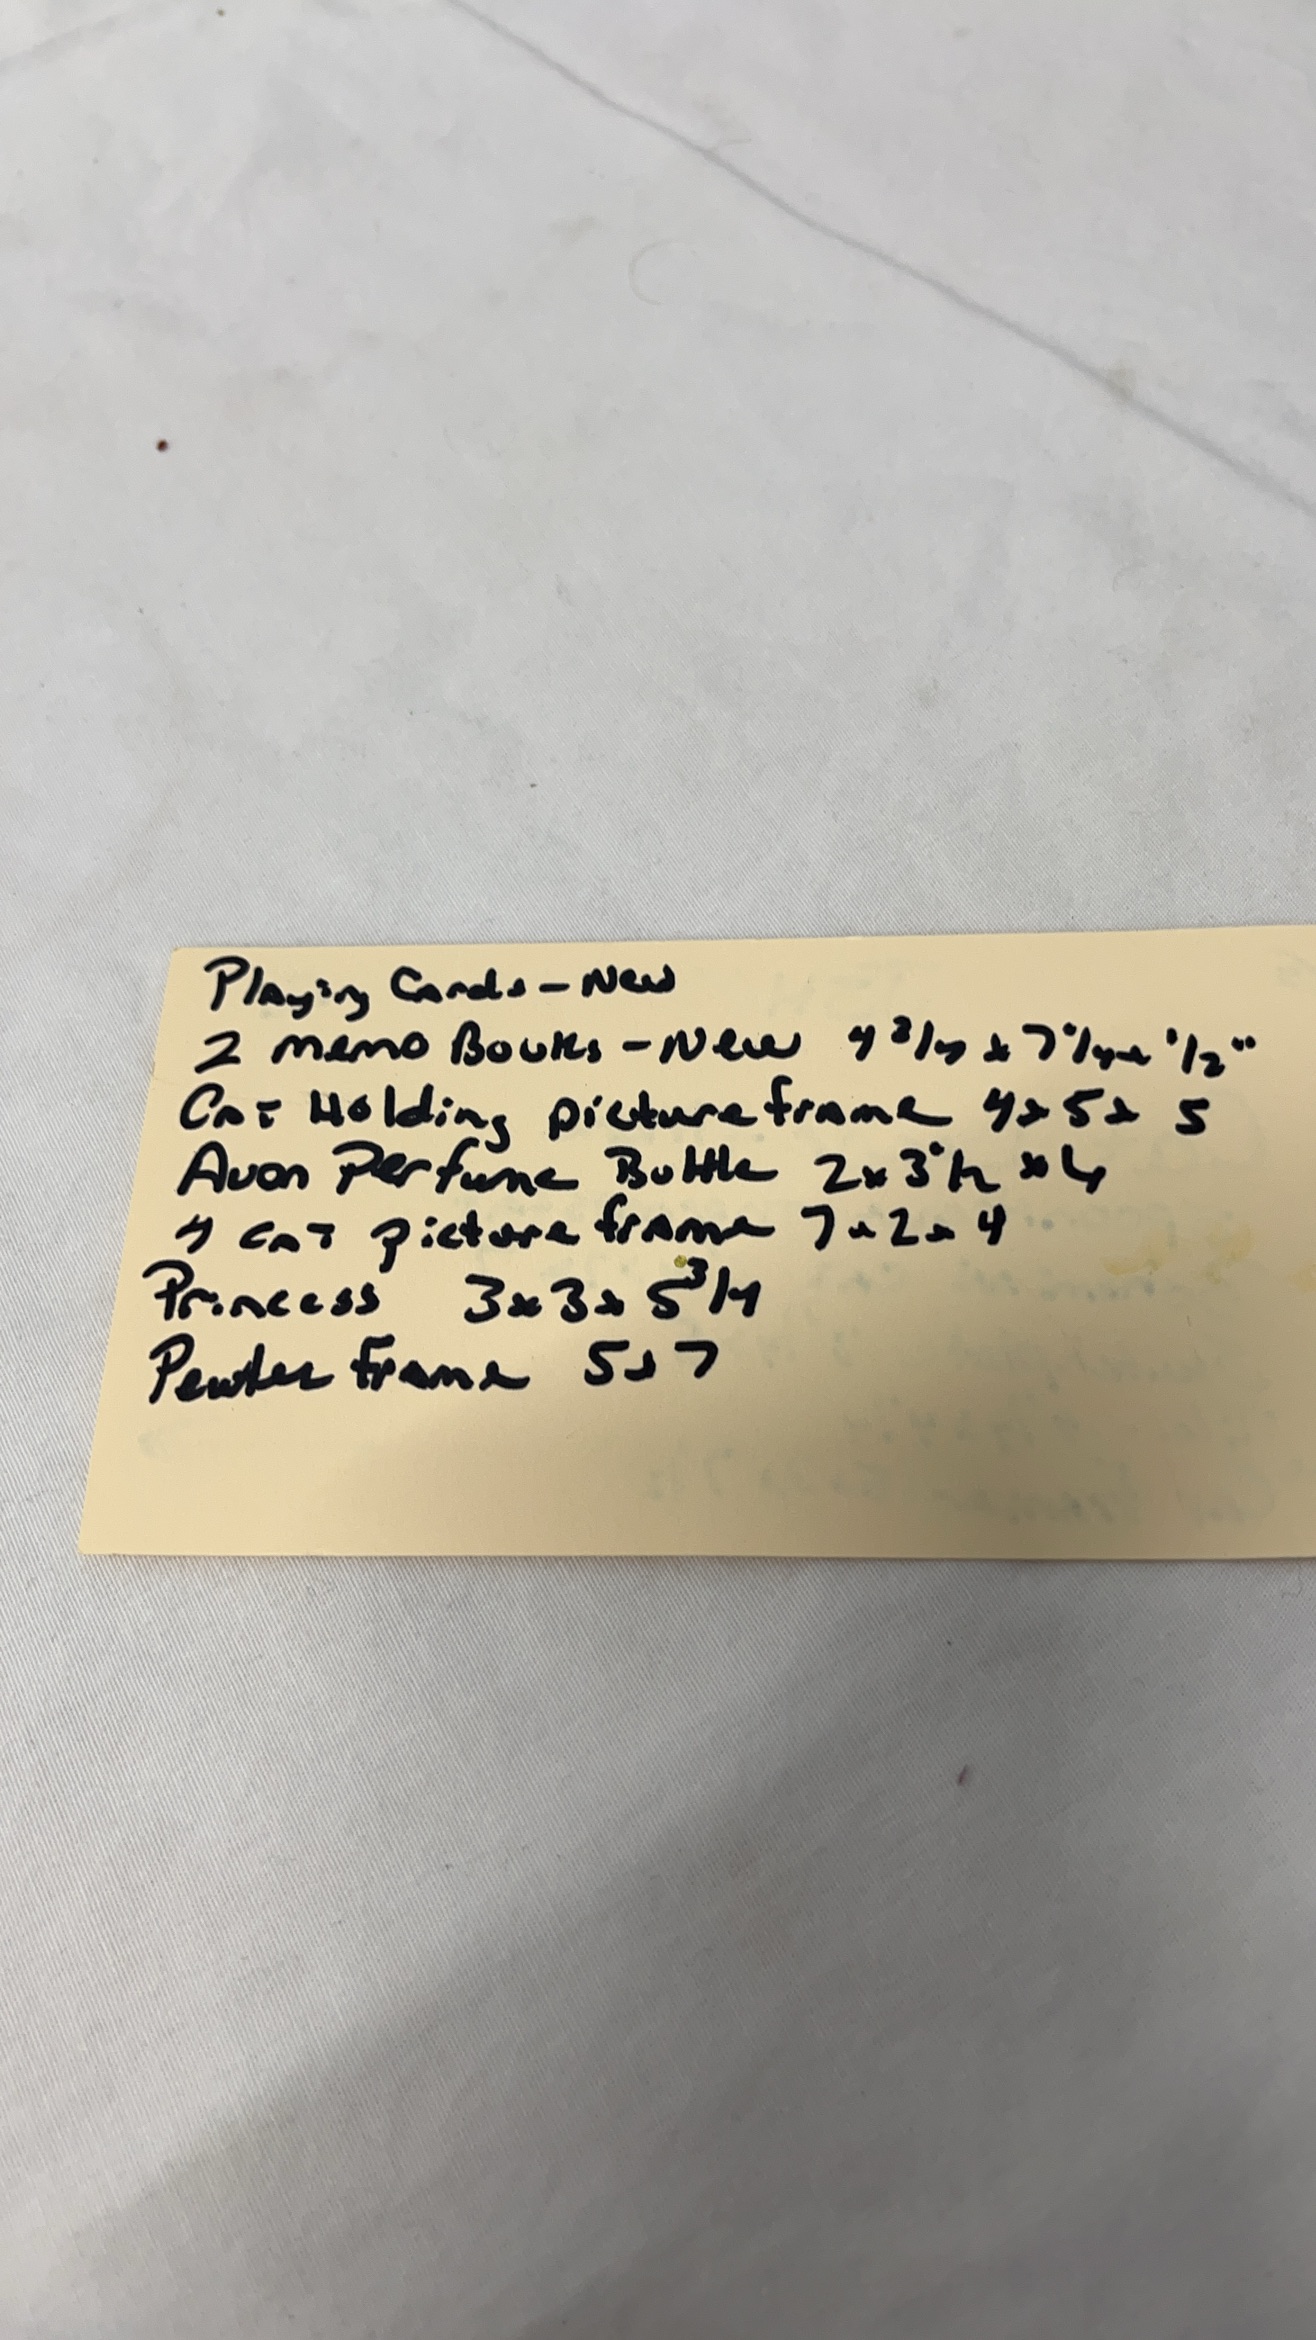 Playing Cards - New
2 memo Books - New 4 3/4 x 7 1/4 x 1/2"
Cat Holding picture frame 4 x 5 x 5
Avon Perfume Bottle 2 x 3 1/2 x 4
4 cat picture frame 7 x 2 x 4
Princess 3 x 3 x 5 3/4
Pewter frame 5 x 7